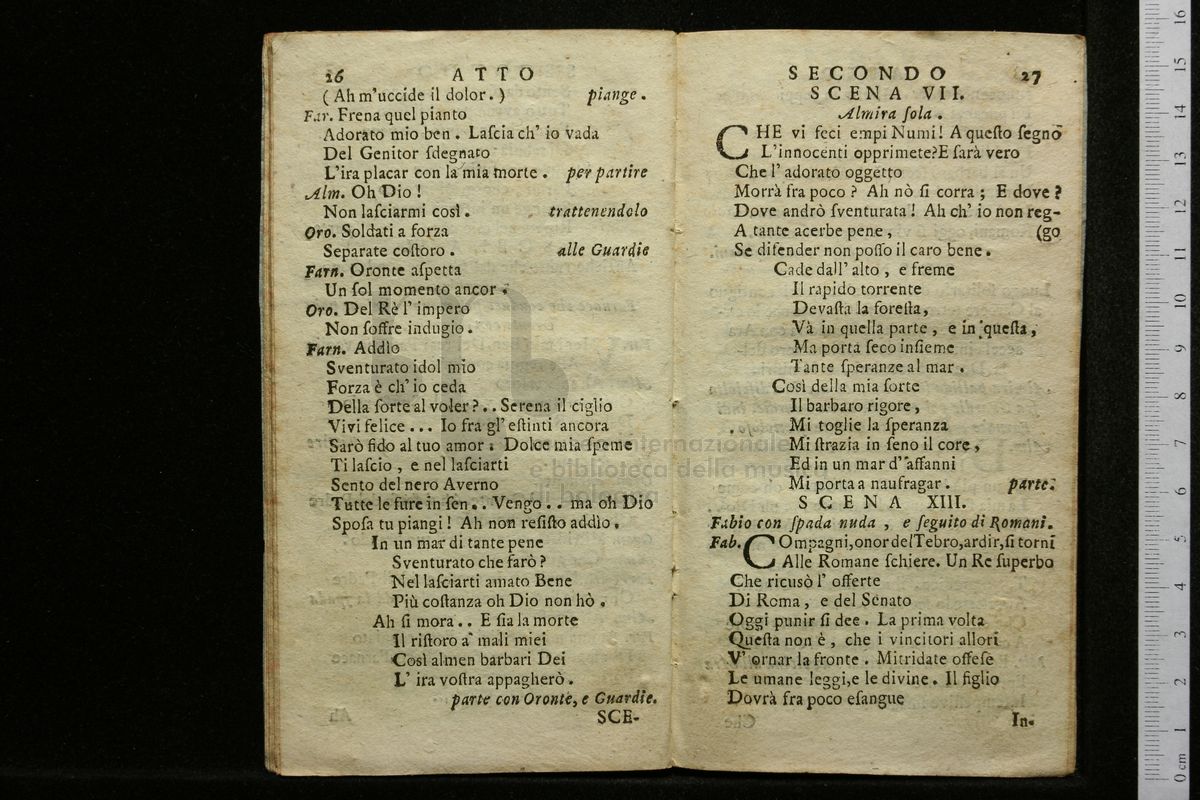 26 ATTO
( Ah m'uccide il dolor. ) piange .
Far. Frena quel pianto
Adorato mio ben . Laſcia ch' io vada
Del Genitor ſdegnato
L'ira placar con la mia morte . per partire
Alm. Oh Dio !
Non laſciarmi così . trattenendolo
Oro. Soldati a forza
Separate coſtoro . alle Guardie
Farn. Oronte aſpetta
Un ſol momento ancor .
Oro. Del Rè l' impero
Non ſoffre indugio .
Farn. Addìo
Sventurato idol mio
Forza è ch' io ceda
Della ſorte al voler ? . . Serena il ciglio
Vivi felice . . . Io fra gl' eſtinti ancora
Sarò fido al tuo amor . Dolce mia ſpeme
Ti laſcio , e nel laſciarti
Sento del nero Averno
Tutte le furie in ſen . . Vengo . . ma oh Dio
Spoſa tu piangi ! Ah non reſiſto addìo .
In un mar di tante pene
Sventurato che farò ?
Nel laſciarti amato Bene
Più coſtanza oh Dio non hò .
Ah ſi mora . . E ſia la morte
Il riſtoro a' mali miei
Così almen barbari Dei
L' ira voſtra appagherò .
parte con Oronte, e Guardie.
SCE-
SECONDO 27
SCENA VII.
Almira ſola .
CHE vi feci empi Numi! A queſto ſegno
L'innocenti opprimete?E ſarà vero
Che l' adorato oggetto
Morrà fra poco ? Ah nò ſi corra ; E dove ?
Dove andrò ſventurata ! Ah ch' io non reg-
A tante acerbe pene , (go
Se difender non poſſo il caro bene .
Cade dall' alto , e freme
Il rapido torrente
Devaſta la foreſta,
Và in quella parte , e in queſta,
Ma porta ſeco inſieme
Tante ſperanze al mar .
Così della mia ſorte
Il barbaro rigore ,
Mi toglie la ſperanza
Mi ſtrazia in ſeno il core ,
Ed in un mar d' affanni
Mi porta a naufragar . parte.
SCENA XIII.
Fabio con ſpada nuda , e ſeguito di Romani.
Fab. COmpagni,onor del Tebro,ardir,ſi torni
Alle Romane ſchiere. Un Re ſuperbo
Che ricusò l' offerte
Di Roma , e del Senato
Oggi punir ſi dee . La prima volta
Queſta non è , che i vincitori allori
V' ornar la fronte . Mitridate offeſe
Le umane leggi,e le divine . Il figlio
Dovrà fra poco eſangue
In-